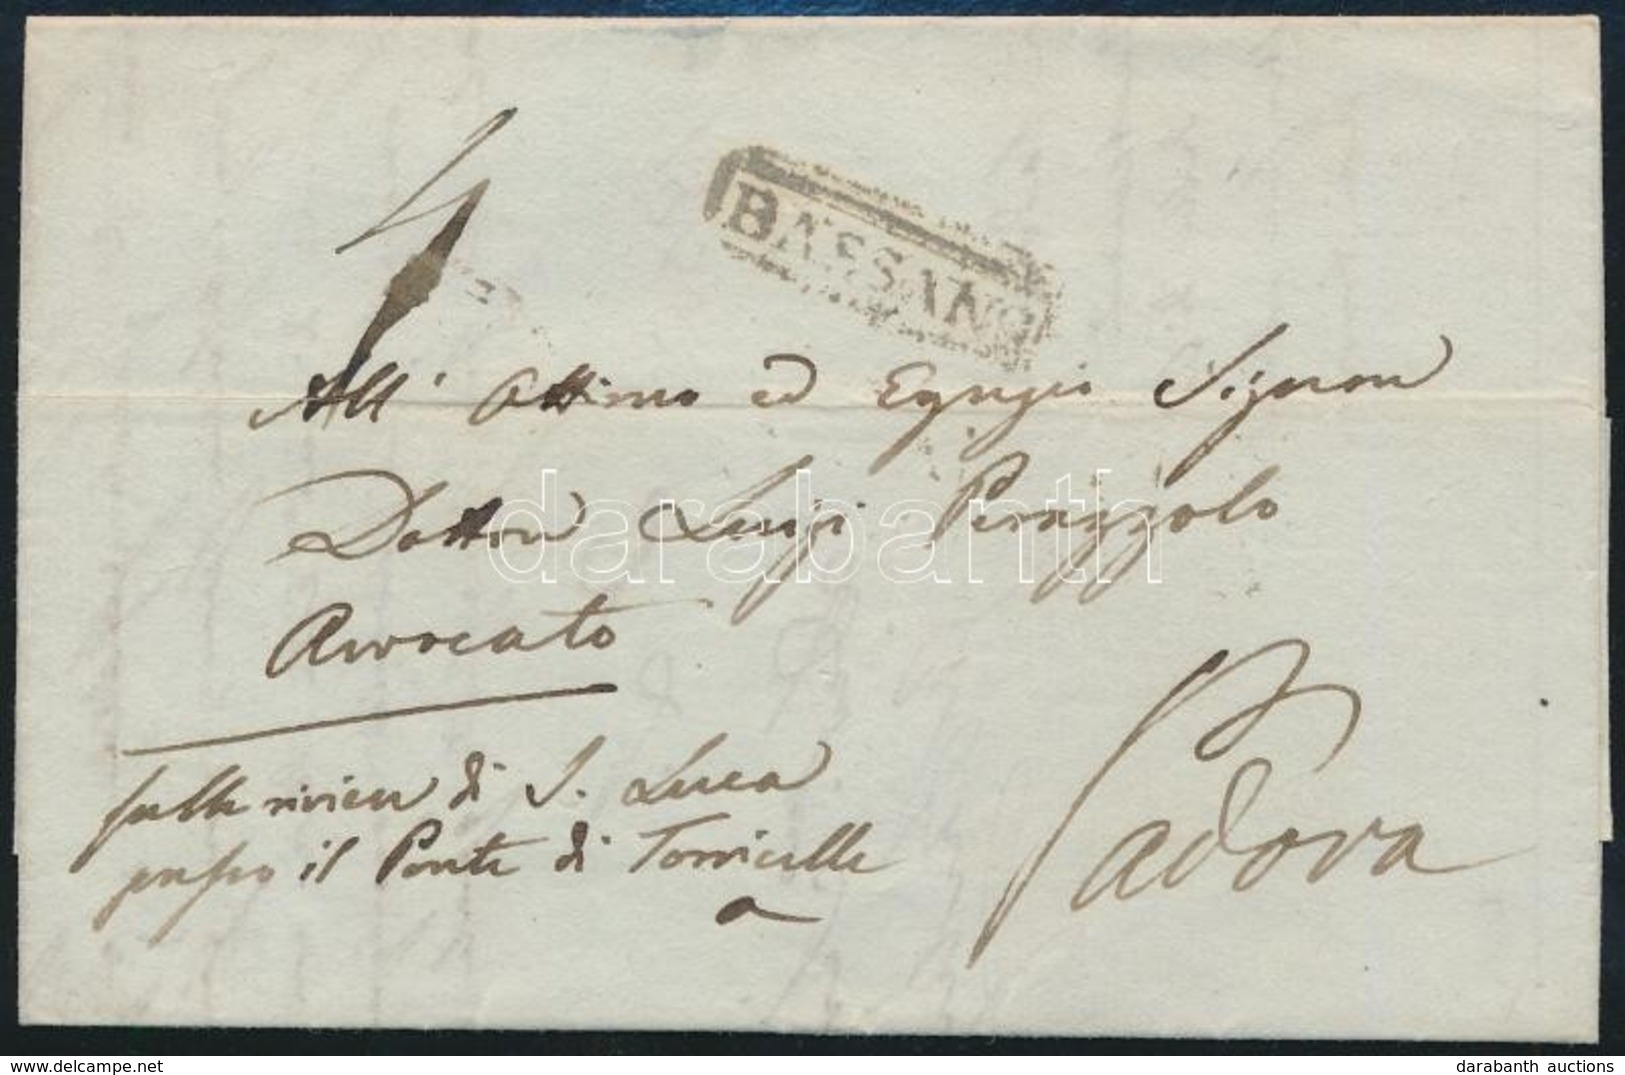 4
BASSANO
All' Ottimo ed Egregio Signor
Dottor Luigi Perazzolo
Avvocato
sulla riviera di S. Luca
presso il Ponte di Torricelle
a
Padova
darabanth
darabanth auctions